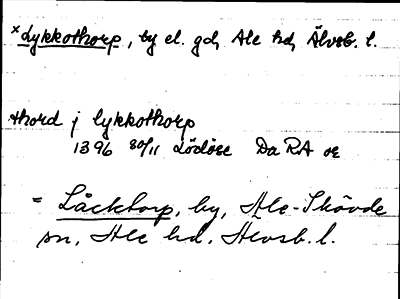 ×Lykkothorp, by el. gd, Ale hd, Älvsb. l.
thord j lykkothorp
1396 30/11 Lödöse DaRA or
= Läcktorp, by, Ale-Skövde
sn, Ale hd, Älvsb. l.